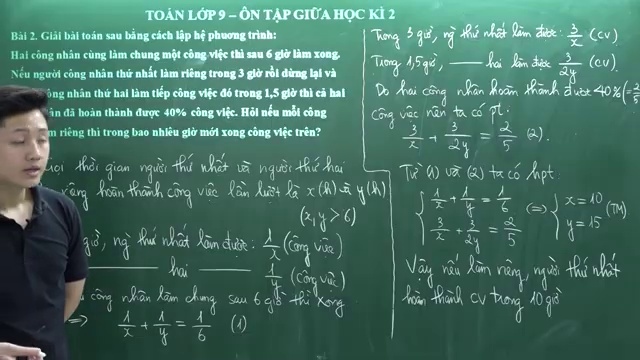 TOÁN LỚP 9 – ÔN TẬP GIỮA HỌC KÌ 2
Bài 2. Giải bài toán sau bằng cách lập hệ phương trình:
Hai công nhân cùng làm chung một công việc thì sau 6 giờ làm xong.
Nếu người công nhân thứ nhất làm riêng trong 3 giờ rồi dừng lại và
công nhân thứ hai làm tiếp công việc đó trong 1,5 giờ thì cả hai
đã hoàn thành được 40% công việc. Hỏi nếu mỗi công
làm riêng thì trong bao nhiêu giờ mới xong công việc trên?
gọi thời gian người thứ nhất và người thứ hai
hoàn thành công việc lần lượt là x(h) và y(h)
(x, y > 6)
giờ, ng thứ nhất làm được: 1/x (công việc)
——— hai ——— 1/y (công việc)
công nhân làm chung sau 6 giờ thì xong
=> 1/x + 1/y = 1/6 (1)
Trong 3 giờ, ng thứ nhất làm được: 3/x (cv)
Trong 1,5 giờ, ——— hai làm được 3/2y (cv)
Do hai công nhân hoàn thành được 40% (= 2/5
công việc nên ta có pt:
3/x + 3/2y = 2/5 (2).
Từ (1) và (2) ta có hpt:
{ 1/x + 1/y = 1/6
3/x + 3/2y = 2/5 <=> { x = 10
y = 15 (TM)
Vậy nếu làm riêng, người thứ nhất
hoàn thành cv trong 10 giờ